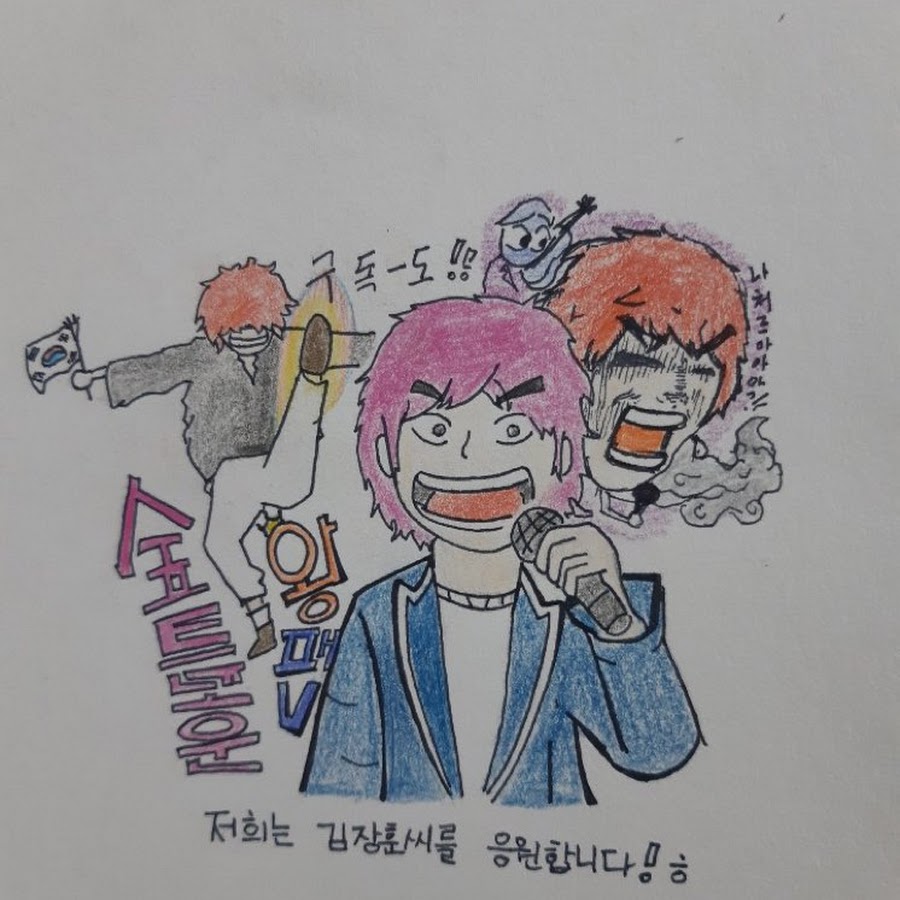 독-도!!
나처럼마아아악!!
숲튽훈
왕팬
저희는 김장훈씨를 응원합니다! ㅎ